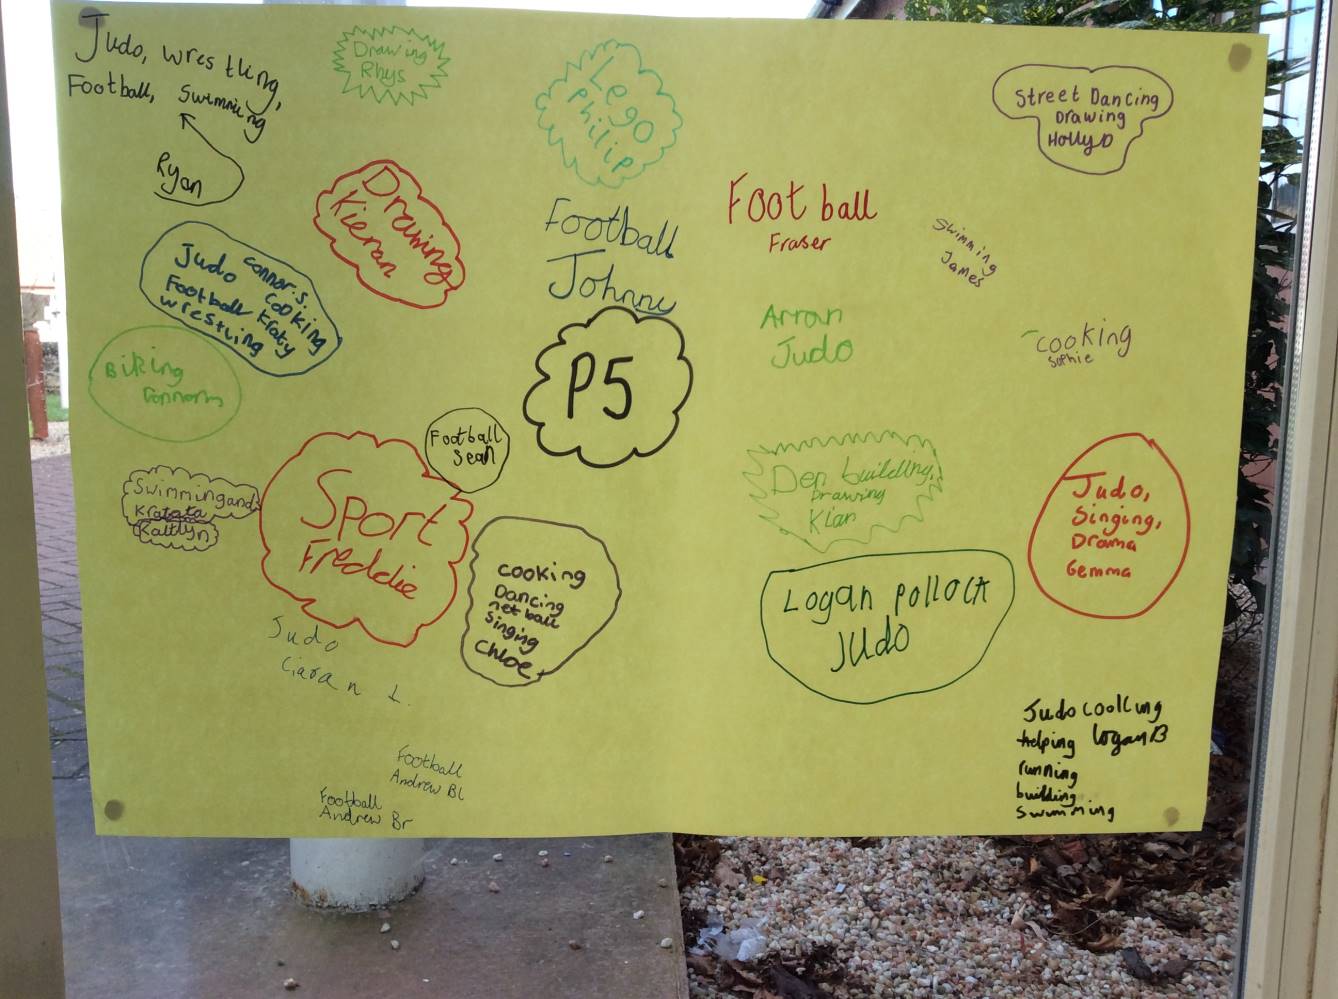 Judo, wrestling,
Football, Swimming
Ryan
Drawing
Rhys
Lego
Philip
Street Dancing
Drawing
Holly D
Drawing
Kieran
Football
Johnny
Football
Fraser
Swimming
James
Judo connor.s.
cooking
Football Kraty
wrestling
Arran
Judo
cooking
Sophie
Biking
Connor m
P5
Football
Sean
Sport
Freddie
Swimming and
Kratata
Kaitlyn
Den building,
Drawing
Kian
Judo,
Singing,
Drama
Gemma
cooking
Dancing
netball
singing
Chloe
Logan pollock
Judo
Judo
Ciaran L.
Football
Andrew Bl
Football
Andrew Br
Judo coolling
helping logan B
running
building
swimming